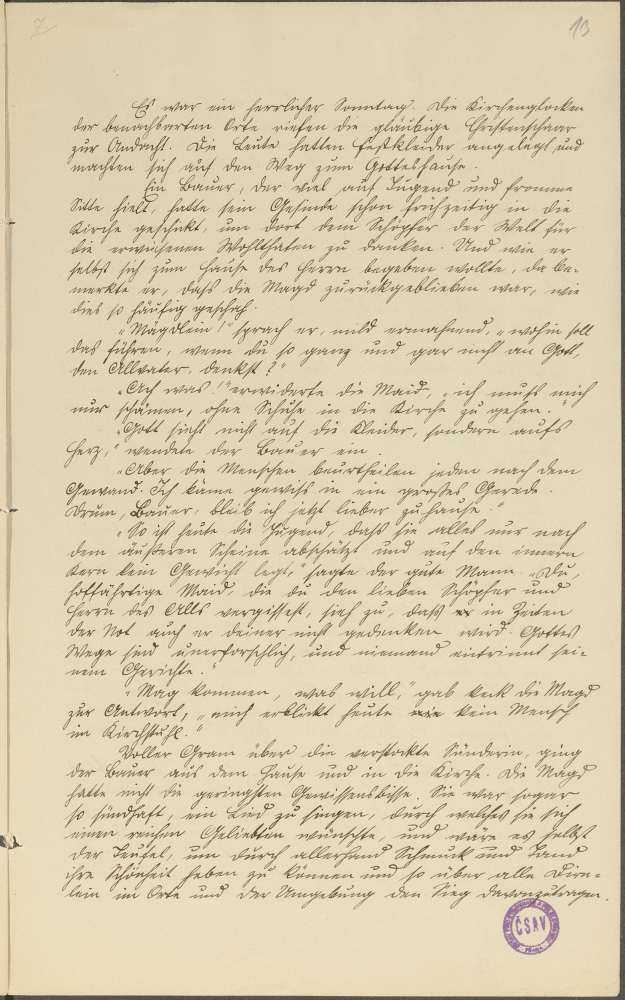 7
13
Es war ein herrlicher Sonntag. Die Kirchenglocken
der benachbarten Orte riefen die gläubige Christenschaar
zur Andacht. Die Leute hatten Festkleider angelegt und
machten sich auf den Weg zum Gotteshause.
Ein Bauer, der viel auf Tugend und fromme
Sitte hielt, hatte sein Gesinde schon frühzeitig in die
Kirche geschikt, um dort dem Schöpfer der Welt für
die erwiesenen Wohlthaten zu danken. Und wie er
selbst sich zum Hause des Herrn begeben wollte, da be-
merkte er, daß die Magd zurückgeblieben war, wie
dies so häufig geschah.
„Mägdlein!" sprach er, mild ermahnend, „wohin soll
das führen, wenn du so ganz und gar nicht an Gott,
den Allvater, denkst?"
„Ach was!" erwiderte die Maid, „ich muß mich
nur schämen, ohne Schuhe in die Kirche zu gehen."
„Gott sieht nicht auf die Kleider, sondern aufs
Herz," wendete der Bauer ein.
„Aber die Menschen beurtheilen jeden nach dem
Gewand. Ich käme gewiß in ein großes Gerede.
Drum, Bauer, bleib ich jetzt lieber zu Hause."
„So ist heute die Jugend, daß sie alles nur nach
dem äußeren Scheine abschätzt und auf den innern
Kern kein Gewicht legt," sagte der gute Mann. „Du,
hoffährtige Maid, die du den lieben Schöpfer und
Herrn des Alls vergissest, sieh zu, daß er in Zeiten
der Not auch er deiner nicht gedenken wird. Gottes
Wege sind unerforschlich, und niemand entrinnt sei-
nem Gerichte."
„Mag kommen, was will," gab keck die Magd
zur Antwort, „mich erblickt heute kein Mensch
im Kirchstuhl."
Voller Gram über die verstockte Sünderin, ging
der Bauer aus dem Hause und in die Kirche. Die Magd
hatte nicht die geringsten Gewissensbisse. Sie war sogar
so sündhaft, ein Lied zu singen, durch welches sie sich
einen reichen Geliebten wünschte, und wäre es selbst
der Teufel, um durch allerhand Schmuck und Tand
ihre Schönheit heben zu können und so über alle Dirn-
lein im Orte und der Umgebung den Sieg davonzutragen.
ČSAV